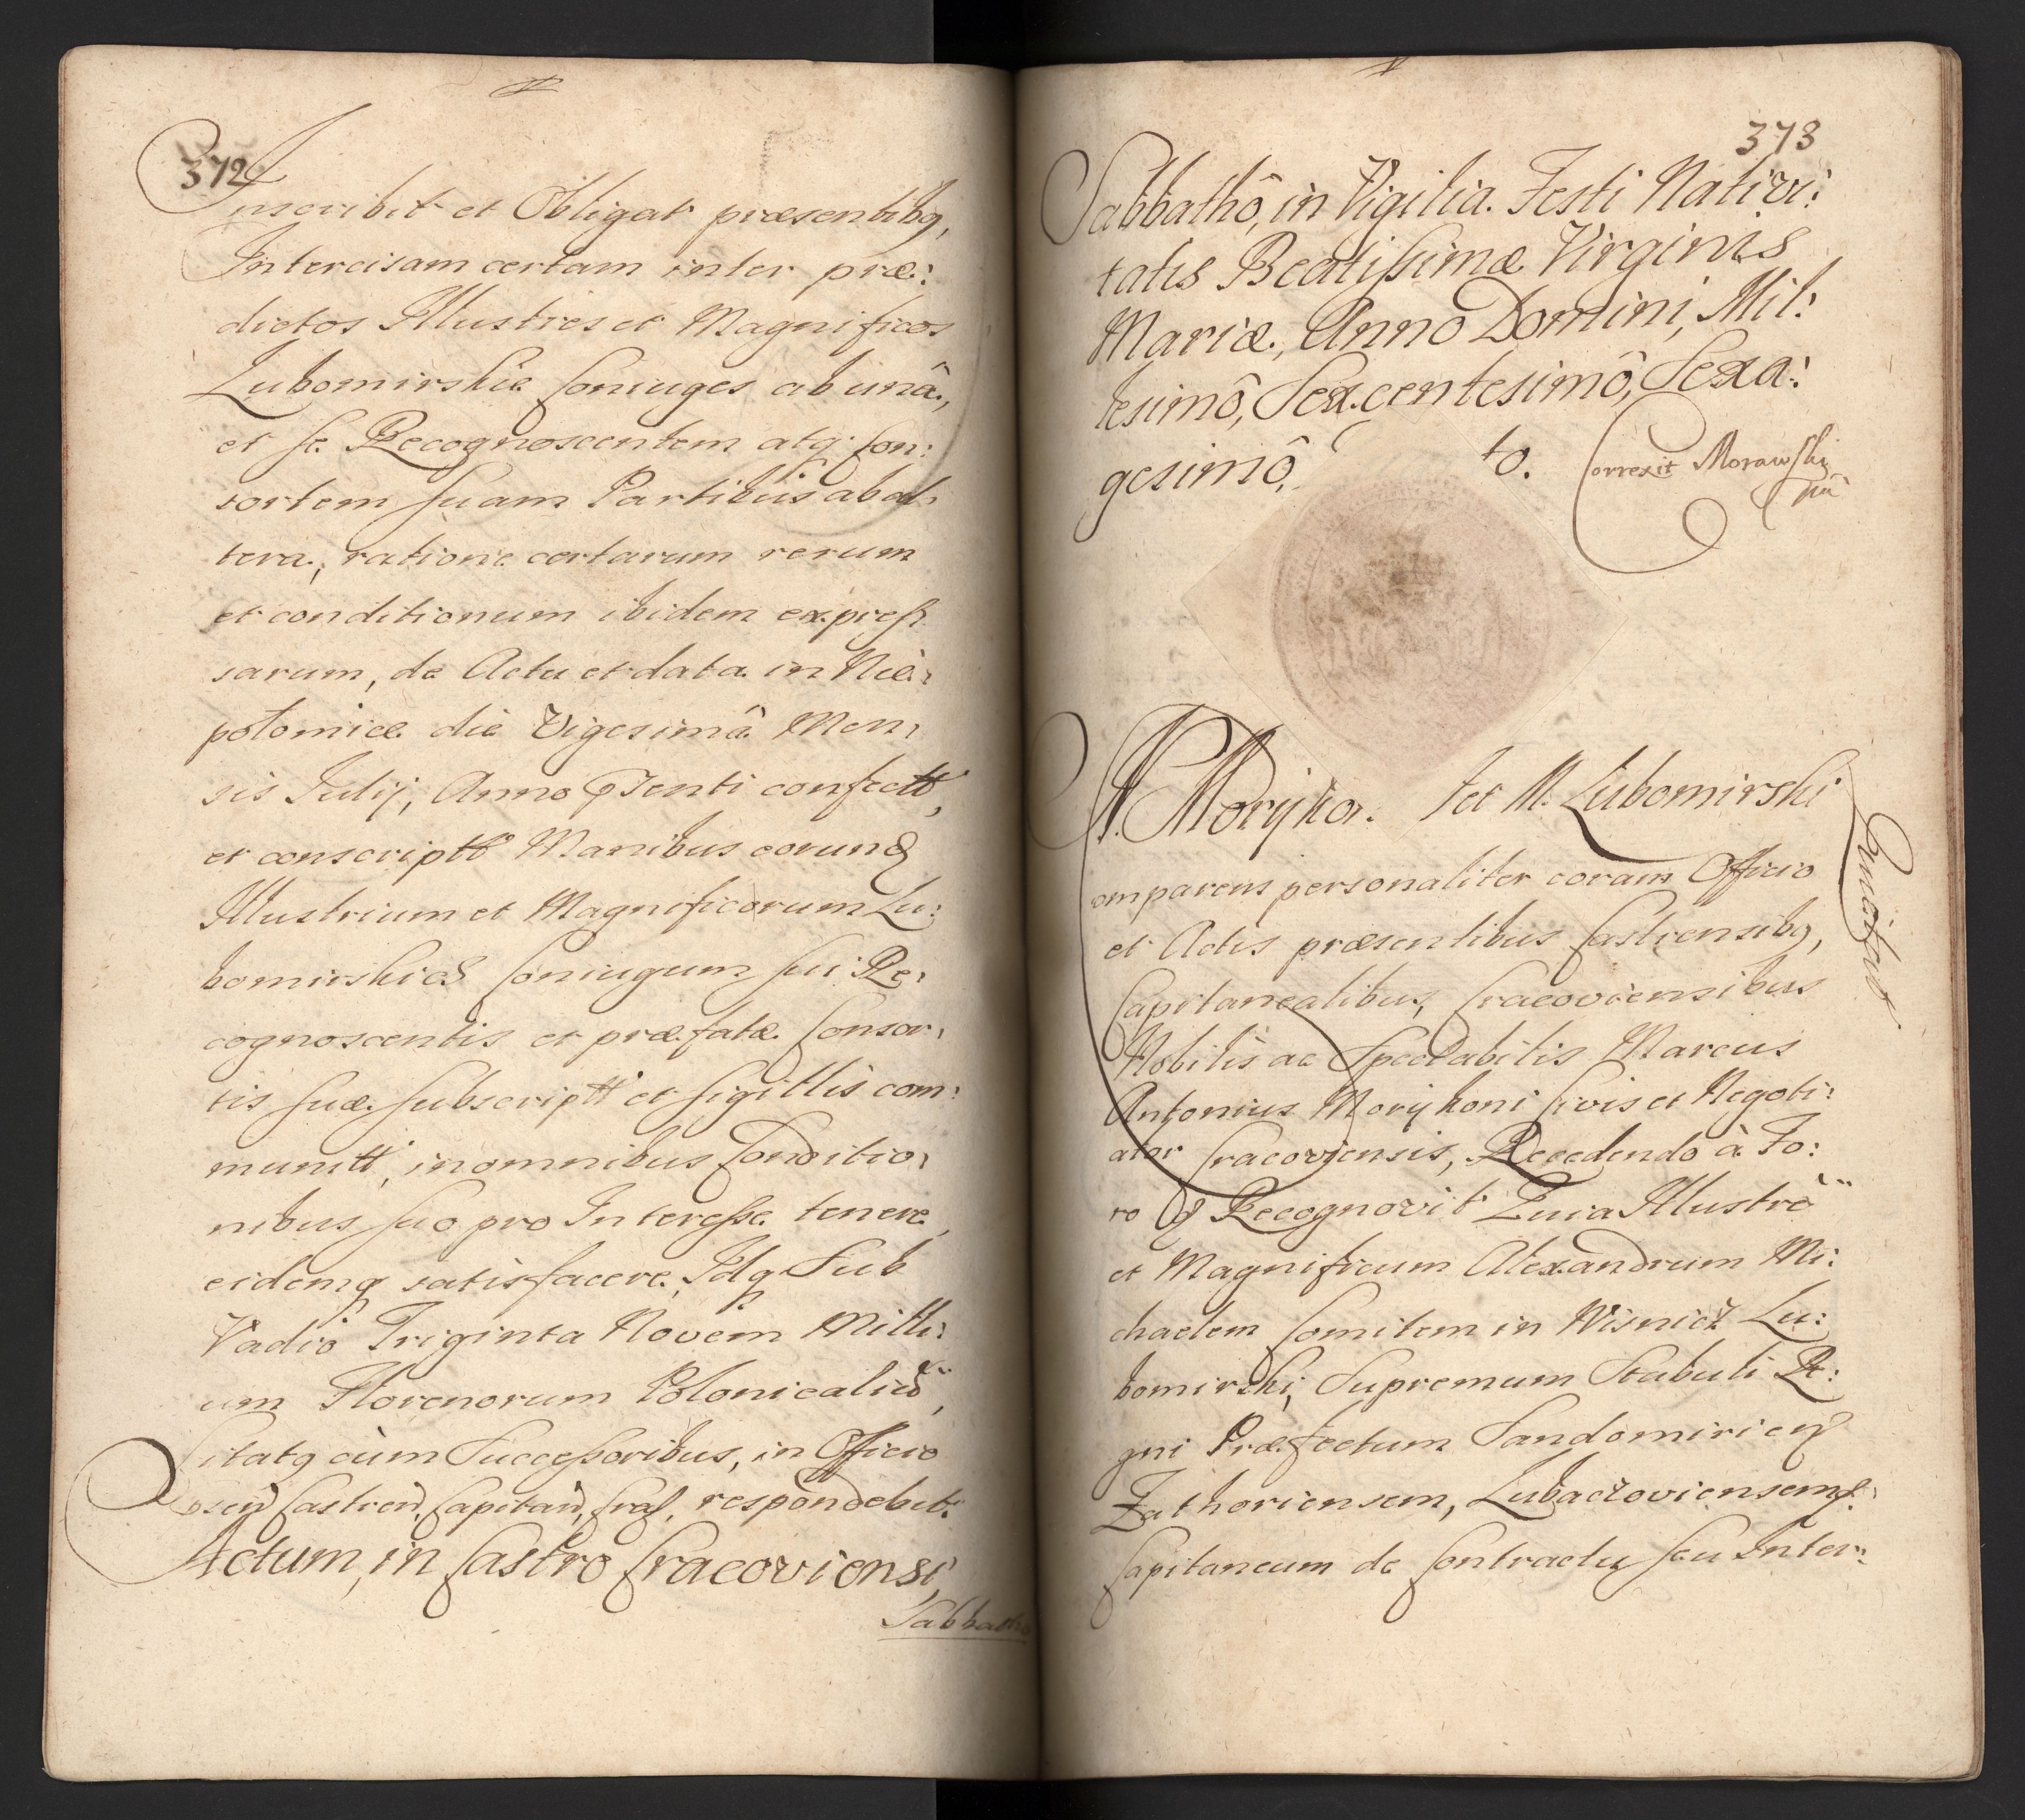 372
Inscribit et Obligat præsentibq,
Intercisam certam inter præ:
dictos Illustres et Magnificos
Lubomirskie Coniuges ab unâ,
et se Recognoscentem atq Con:
sortem suam Partibus ab al
tera, ratione certarum rerum
et conditionum ibidem expres
sarum, de Actu et data in Nie:
polomice die Vigesimâ Men:
sis Julij, Anno pñti confectt,
et conscriptt Manibus eorund
Illustrium et Magnificorum Lu:
bomirskich Coniugum sui Re:
cognoscentis et præfatæ Consor:
tis suæ subscriptt et sigillis com:
munitt, in omnibus Conditio:
nibus suo pro Interesse tenere,
eidemq satisfacere, Idq Sub
Vadio Triginta Novem Milli:
um Florenorum Polonicaliũ,
Citatq cum Successoribus, in Officio
Castreñ, Capitañ, Crac, respondebit.
Actum, in Castro Cracoviensi,
Sabbatho
373
Sabbathô, in Vigilia Festi Nativi:
tatis Beatissimæ Virginis
Mariæ, Anno Domini, Mil:
lesimô, Sexcentesimô, Sexa:
gesimô, to. Correxit Morawski
mp
N. Morijko. Jet M. Lubomirski
Quietat
omparens personaliter coram Officio
et Actis præsentibus Castrensibq,
Capitanealibus, Cracoviensibus
Nobilis ac Spectabilis Marcus
Antonius Morijkoni Civis et Negoti:
ator Cracoviensis, Recedendo à Fo:
ro & Recognovit Quia Illustrẽ
et Magnificum Alexandrum Mi:
chaelem Comitem in Wisnicz Lu:
bomirski, Supremum Stabuli Re:
gni Præfectum Sandomirien
Zathoriensem, Lubaczoviensemq
Capitaneum de Contractu seu Inter: